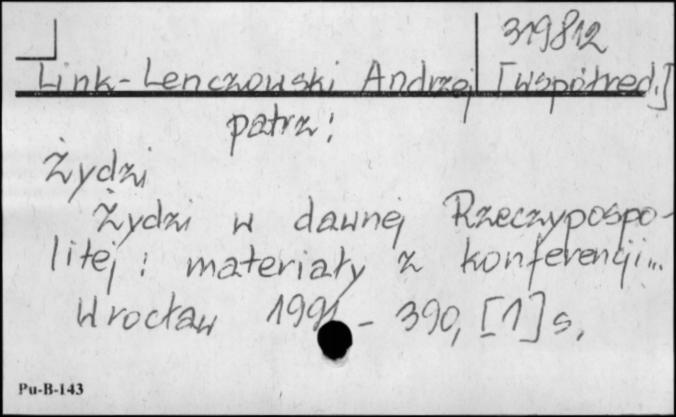 319812
Link-Lenczowski Andrzej [współred.]
patrz:
Żydzi
Żydzi w dawnej Rzeczypospo-
litej : materiały z konferencji...
Wrocław 1991 - 390, [1] s.
Pu-B-143